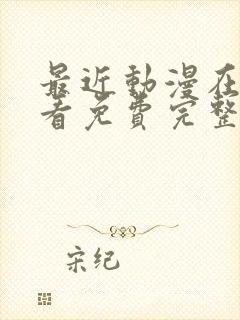 最近動漫在
看免費完整
宋纪